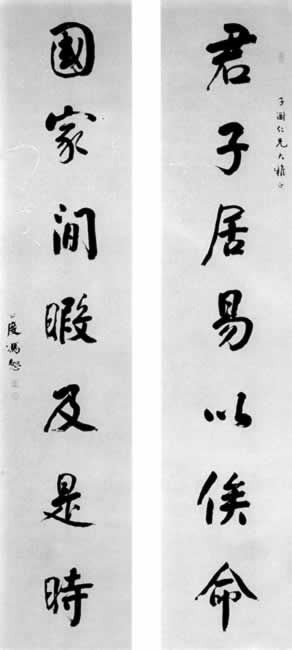 君子居易以俟命
子澍仁兄大雅
國家閒暇及是時
馮恕